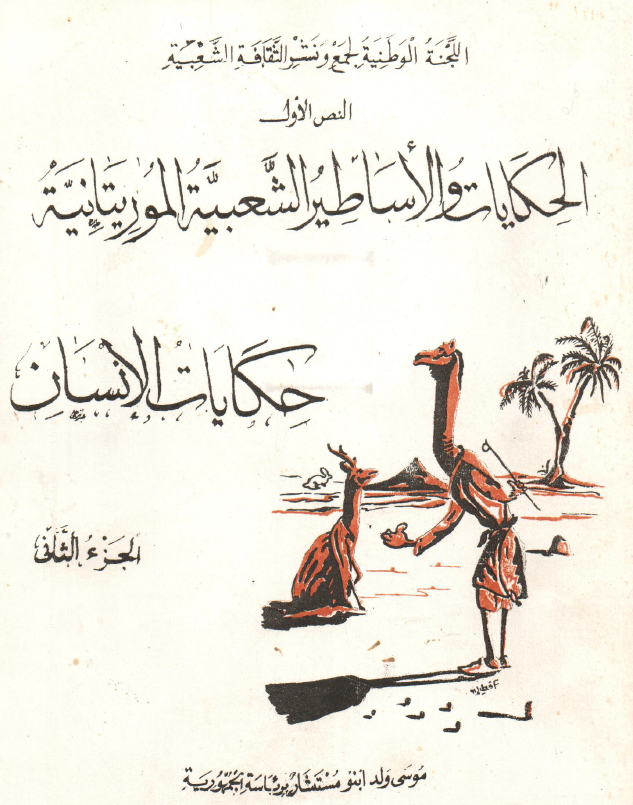 اللَّجْنَةُ الْوَطَنِيَةُ لِجَمْعِ وَنَشْرِ الثَّقَافَةِ الشَّعْبِيَّةِ
النص الأول
الحِكَايَات وَالأَسَاطِيرُ الشَّعبيَّة المُورِيتَانِيَّة
حِكَايَات الإِنْسَان
الجُزءُ الثَّانِي
مُوسَى وَلد ابنو مُسْتَشَارٌ بِرِئَاسَةِ الجُمْهُورِيَةِ